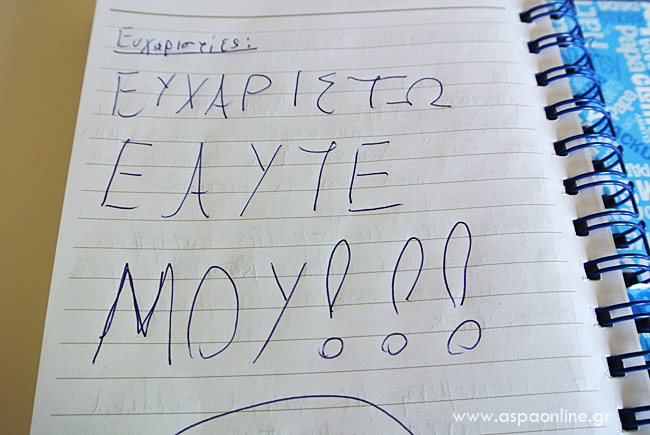 Ευχαριστίες:
ΕΥΧΑΡΙΣΤΩ
ΕΑΥΤΕ
ΜΟΥ!!!
www.aspaonline.gr